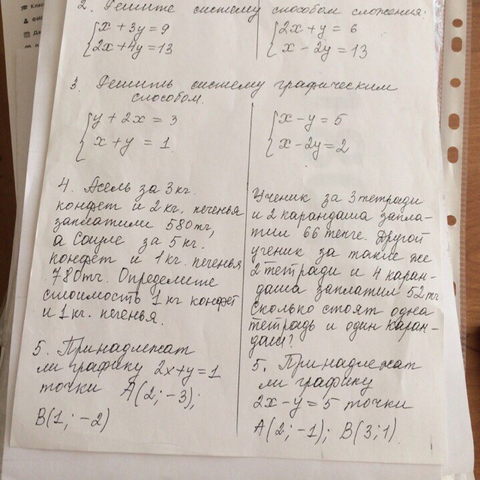 2. Решите систему способом сложения.
x + 3y = 9
2x + 4y = 13
2x + y = 6
x - 2y = 13
3. Решить систему графическим
способом.
y + 2x = 3
x + y = 1
x - y = 5
x - 2y = 2
4. Асель за 3 кг.
конфет и 2 кг. печенья
заплатили 580тг,
а Сауле за 5 кг.
конфет и 1 кг. печенья
780тг. Определите
стоимость 1 кг конфет
и 1 кг. печенья.
5. Принадлежат
ли графику 2x+y=1
точки A(2; -3);
B(1; -2)
Ученик за 3 тетради
и 2 карандаша запла-
тил 66 тенге. Другой
ученик за такие же
2 тетради и 4 каран-
даша заплатил 52 тг
Сколько стоят одна
тетрадь и один каран-
даш?
5. Принадлежат
ли графику
2x - y = 5 точки
A(2; -1); B(3; 1)